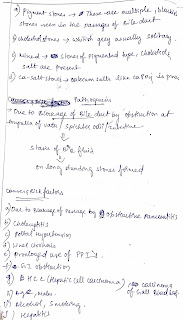 a) Pigment stones → These are multiple, blackish
stones seen in the passages of Bile duct
b) cholesterol stones → which grey usually solitary.
c) Mixed → stones of pigmented type, cholesterol,
salt are present
d) ca-salt stones → calcium salts like
Pathogenesis
• Due to Blockage of Bile duct by obstruction at
ampulla of vater / sphincter oddi /
↓
stasis of Bile fluid
↓
on long standing stones formed
Risk factors
a) Due to Blockage of passage by obstructive Pancreatitis
b) Cholecystitis
c) Portal Hypertension
d) Liver cirrhosis
e) Prolonged use of PPI's
f) G.I obstruction
g) H C C (Hepatic cell carcinoma)
carcinoma
of Gall Bladder
h) Age, Male.
i) Alcohol, Smoking
j) Hepatitis